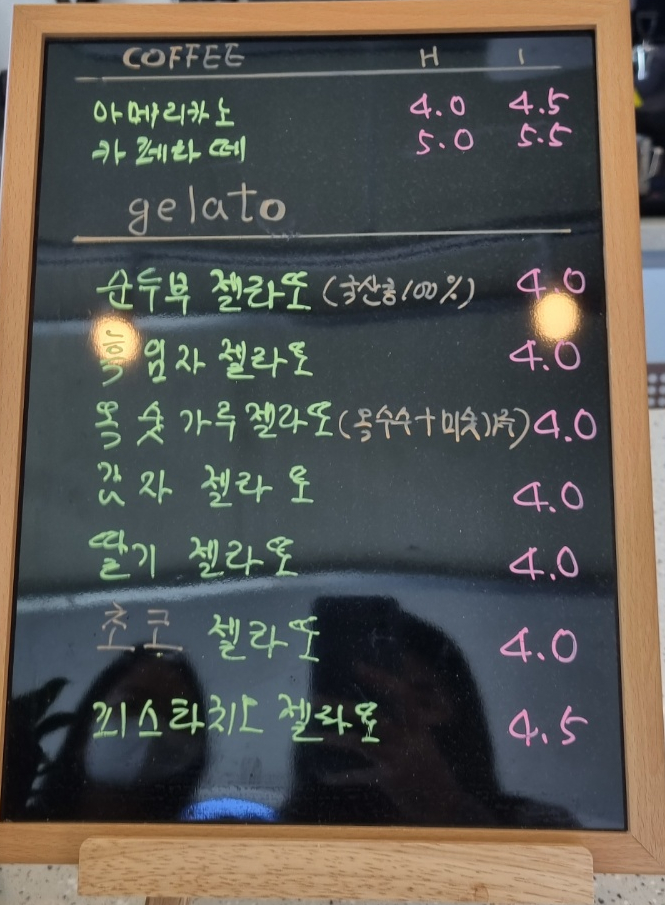 COFFEE H I
아메리카노 4.0 4.5
카페라떼 5.0 5.5
gelato
순두부 젤라또 (국산콩 100%) 4.0
흑임자 젤라또 4.0
옥숫가루 젤라또 (옥수수+미숫가루) 4.0
감자 젤라또 4.0
딸기 젤라또 4.0
초코 젤라또 4.0
피스타치오 젤라또 4.5